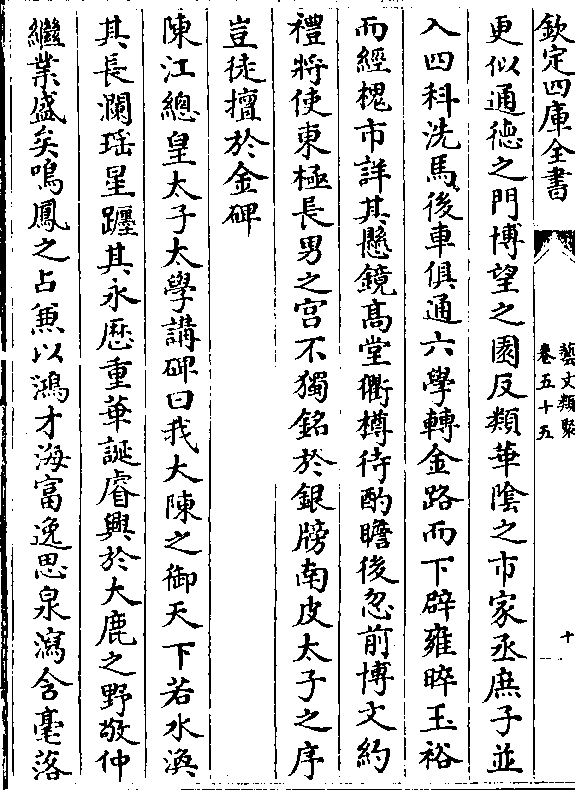 欽定四庫全書
藝文類聚
卷五十五
十
更似通徳之門博望之園反類華陰之市家丞庶子並
入四科洗馬後車俱通六學轉金路而下辟雍晬玉裕
而經槐市詳其懸鏡髙堂衢樽待酌瞻後忽前博文約
禮將使東極長男之宫不獨銘於銀牓南皮太子之序
豈徒擅於金碑
陳江總皇太子太學講碑曰我大陳之御天下若水渙
其長瀾瑶星躔其永厯重華誕睿興於大鹿之野敬仲
繼業盛矣鳴鳳之占兼以鴻才海富逸思泉瀉含毫落